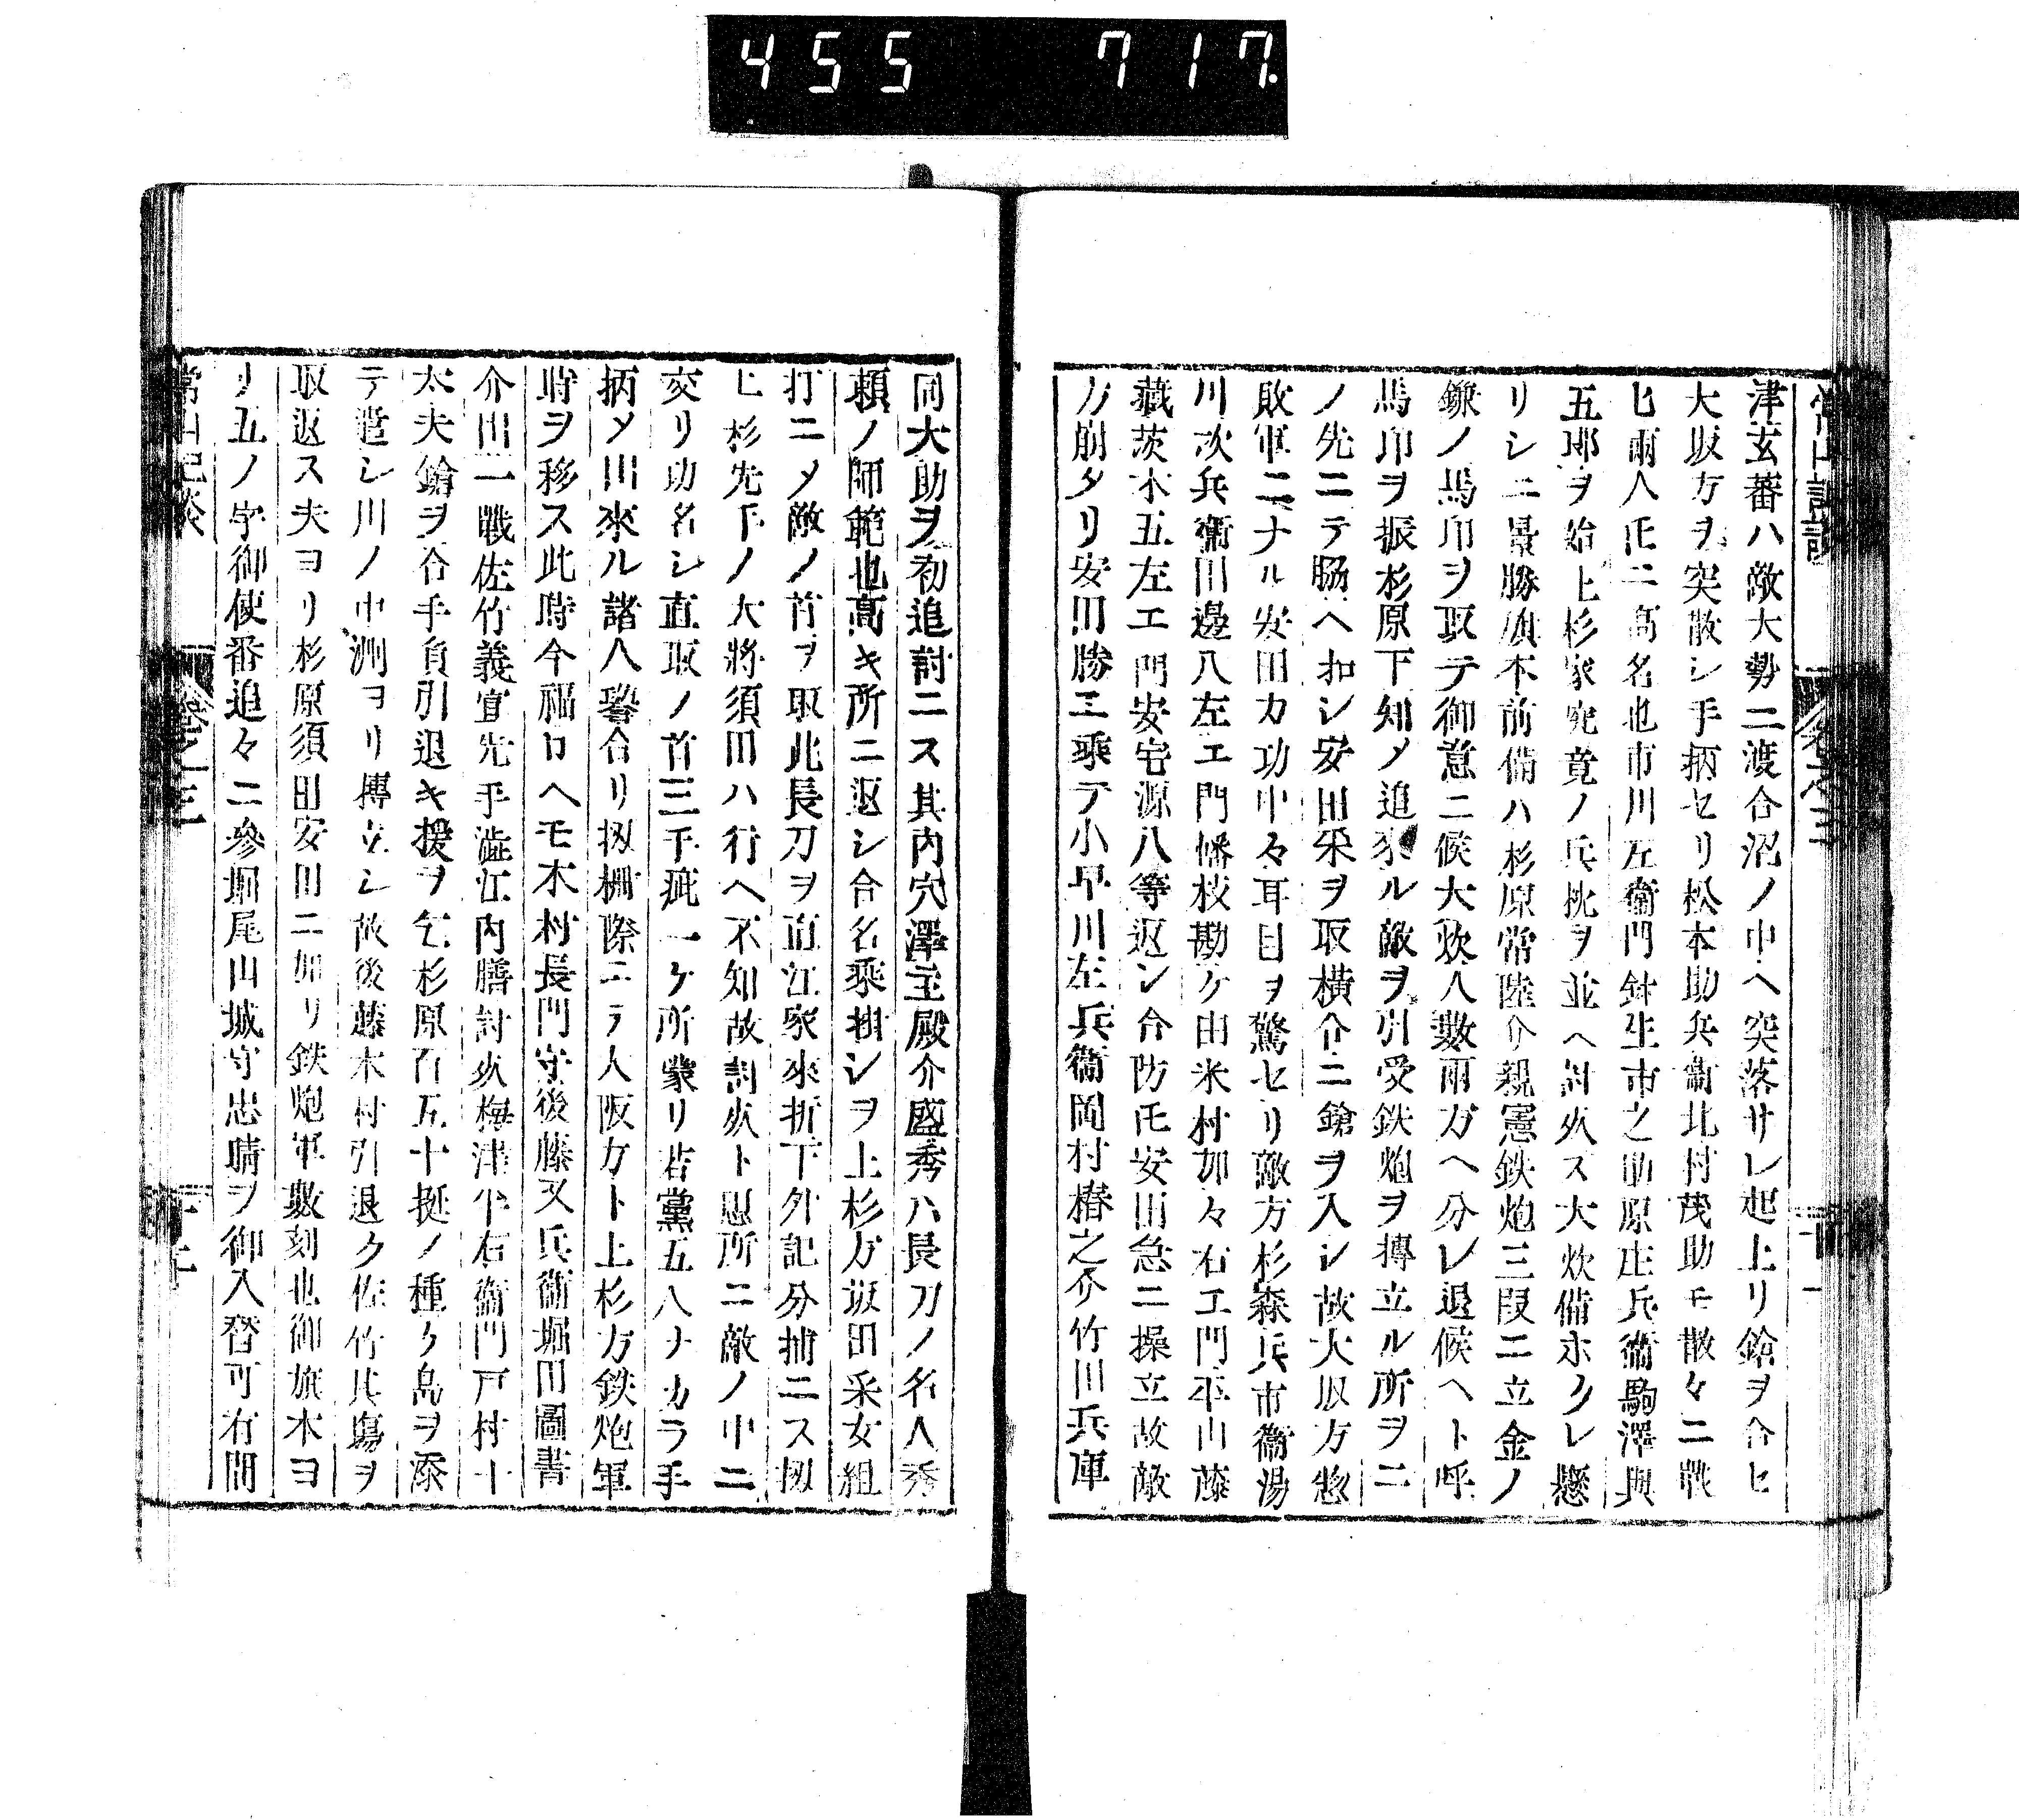 455 717
津玄蕃ハ敵大勢ニ渡合沼ノ中ヘ突落サレ起上リ鎗ヲ合セ
大坂方ヲ突散シ手柄セリ松本助兵衞北村茂助モ散々ニ戰
ヒ兩人𪜈ニ高名也市川左衞門針生市之助原庄兵衞駒澤與
五郎ヲ始上杉家究竟ノ兵枕ヲ並ヘ討死ス大炊備ホクレ懸
リシニ景勝旗本前備ハ杉原常陸介親憲鉄炮三段ニ立金ノ
鎌ノ馬印ヲ取テ御意ニ候大炊人數兩方ヘ分レ退候ヘト呼
馬印ヲ振杉原下知メ追來ル敵ヲ引受鉄炮ヲ摶立ル所ヲ二
ノ先ニテ脇ヘ扣シ安田采ヲ取横合ニ鎗ヲ入シ故大坂方惣
敗軍ニナル安田カ功中々耳目ヲ驚セリ敵方杉森兵市衞湯
川次兵衞田邊八左エ門幡枝勘ケ由米村加々右エ門平山藤
藏茨木五左エ門安宅源八等返シ合防𪜈安田急ニ操立故敵
方崩タリ安田勝ニ乘テ小早川左兵衞岡村椿之介竹川兵庫
同大助ヲ初追討ニス其内穴澤主殿介盛秀ハ長刀ノ名人秀
頼ノ師範也高キ所ニ返シ合名乘掛シヲ上杉方坂田采女組
打ニメ敵ノ首ヲ取此長刀ヲ直江家來折下外記分捕ニス扨
上杉先手ノ大將須田ハ行ヘ不知故討死ト思所ニ敵ノ中ニ
交リ功名シ直取ノ首三手疵一ケ所蒙リ若黨五人ナカラ手
柄メ出來ル諸人譽合リ扨柵際ニテ大阪方ト上杉方鉄炮軍
時ヲ移ス此時今福口ヘモ木村長門守後藤又兵衞堀田圖書
介出一戰佐竹義宣先手澁江内膳討死梅津半右衞門戸村十
太夫鎗ヲ合手負引退キ援ヲ乞杉原百五十挺ノ種ケ島ヲ添
テ遣シ川ノ中洲ヨリ摶立シ故後藤木村引退ク佐竹其塲ヲ
取返ス夫ヨリ杉原須田安田ニ加リ鉄炮軍數刻也御旗本ヨ
リ五ノ字御使番追々ニ參堀尾山城守忠晴ヲ御入替可有間
常山紀談 卷之三